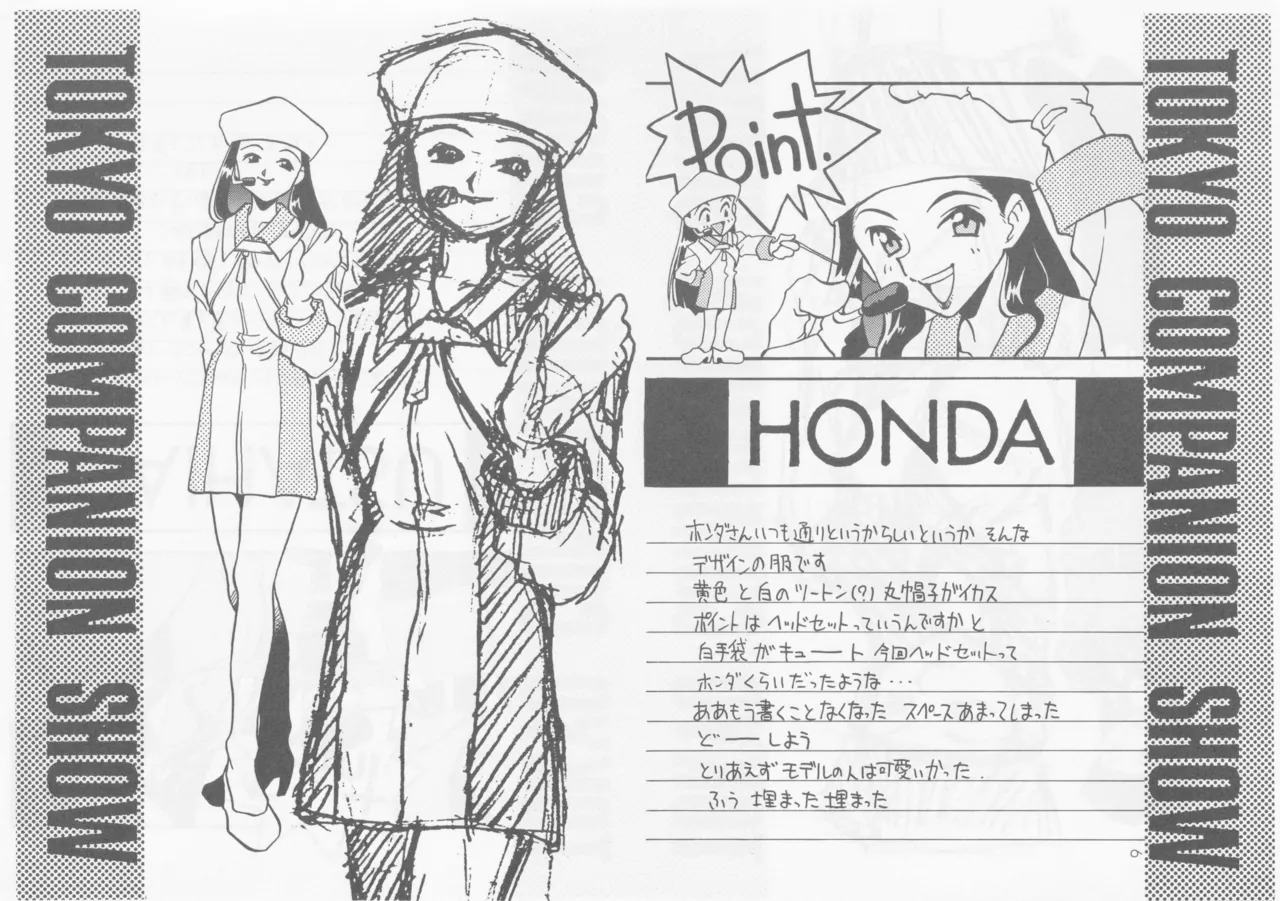 TOKYO COMPANION SHOW
Point.
HONDA
ホンダさんいつも通りというからしいというか そんな
デザインの服です
黄色 と 白の ツートン(?) 丸帽子がイカス
ポイント は ヘッドセットっていうんですか と
白手袋 が キュート 今回ヘッドセットって
ホンダくらいだったような・・・
ああもう書くことなくなった スペースあまってしまった
どーしよう
とりあえず モデルの人は可愛いかった.
ふう 埋まった 埋まった
9
TOKYO COMPANION SHOW